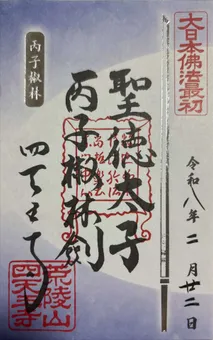 大日本佛法最初
令和八年二月廿二日
丙子椒林
聖徳太子
丙子椒林剣
四天王寺
荒陵山
四天王寺